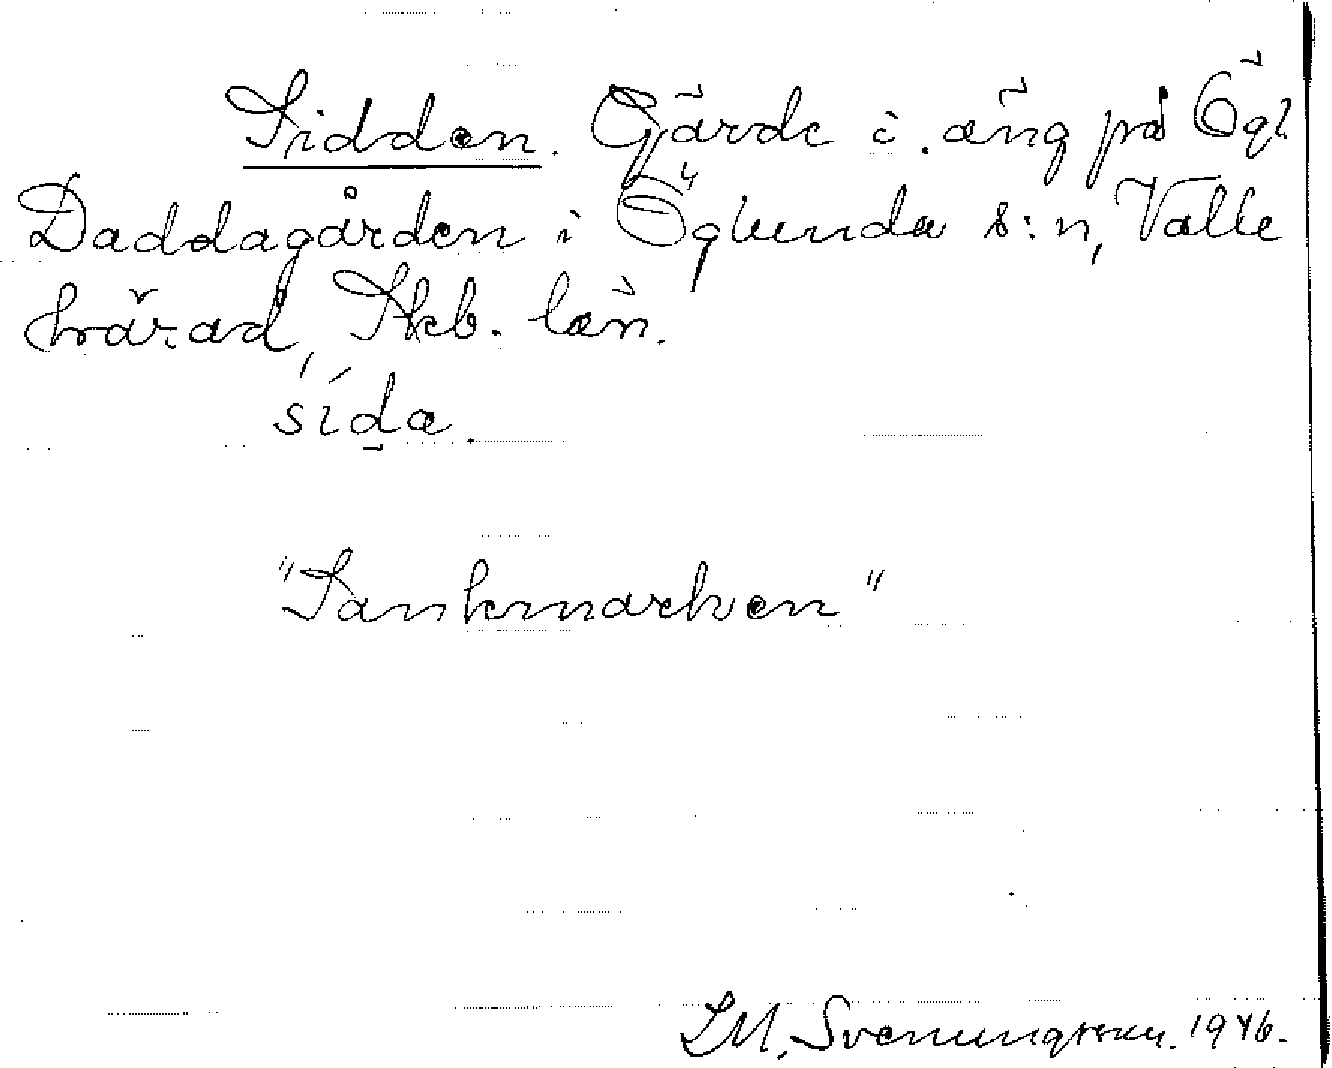 Sidden. Gärde i. äng på Ögl.
Daddagården i Öglunda s:n, Valle
härad, Skb. län.
sída.
"Sankmarken"
LM. Svenungsson. 1946.